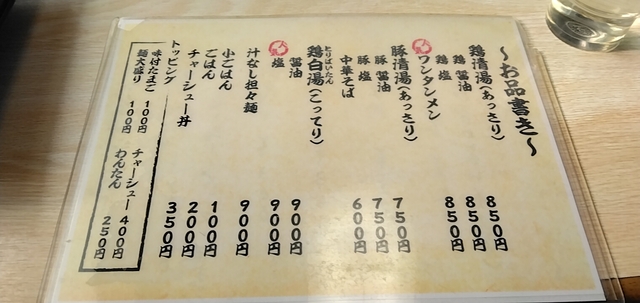 〜お品書き〜
鶏清湯(あっさり)
鶏 醤油 850円
鶏 塩 850円
ワンタンメン 850円
豚清湯(あっさり)
豚 醤油 750円
豚 塩 750円
中華そば 600円
とりぱいたん
鶏白湯(こってり)
醤油 900円
塩 900円
汁なし担々麺 900円
小ごはん 100円
ごはん 200円
チャーシュー丼 350円
トッピング
味付たまご 100円
麺大盛り 100円
チャーシュー 400円
わんたん 250円